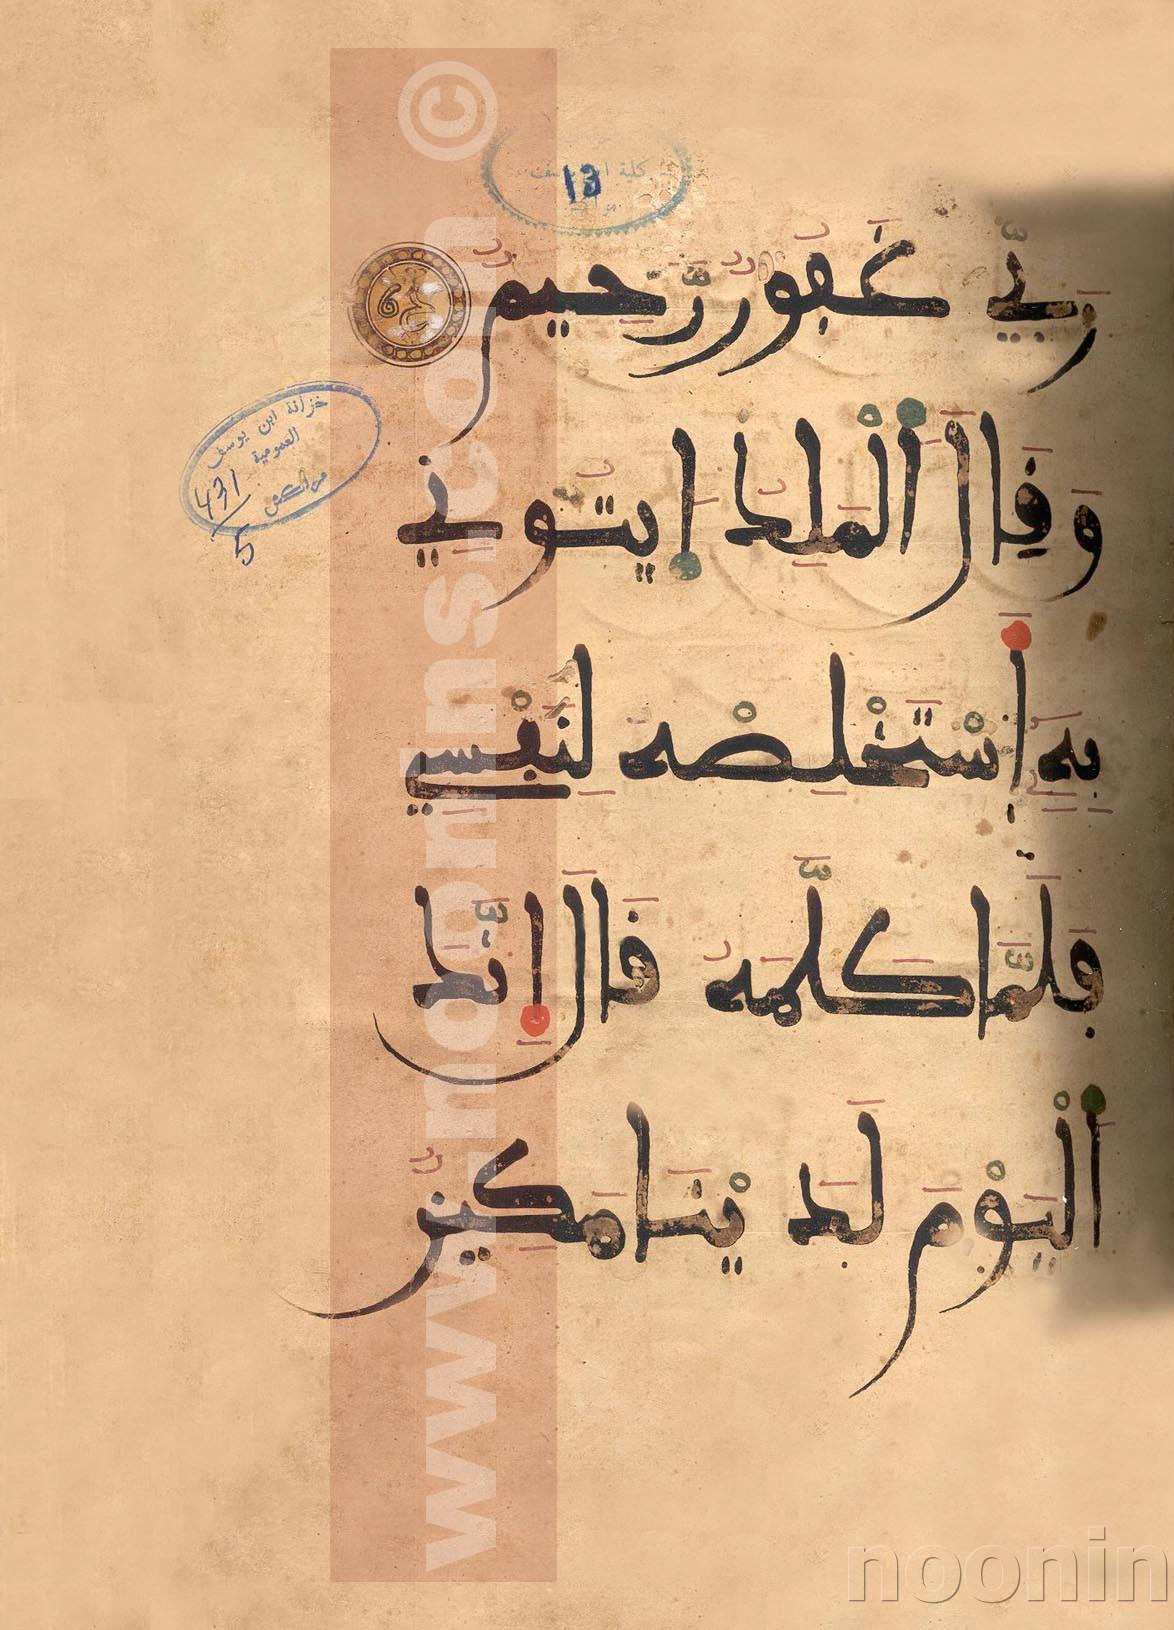 13
رَبِّي غَفُورٌ رَّحِيمٌ
وَقَالَ اَلْمَلِكُ اِيتُونِي
بِهِۦٓ أَسْتَخْلِصْهُ لِنَفْسِي
فَلَمَّا كَلَّمَهُۥ قَالَ إِنَّكَ
اَلْيَوْمَ لَدَيْنَا مَكِينٌ
خزانة ابن يوسف
العمومية
مراكش
431
5
www.noonins.com ©
noonin